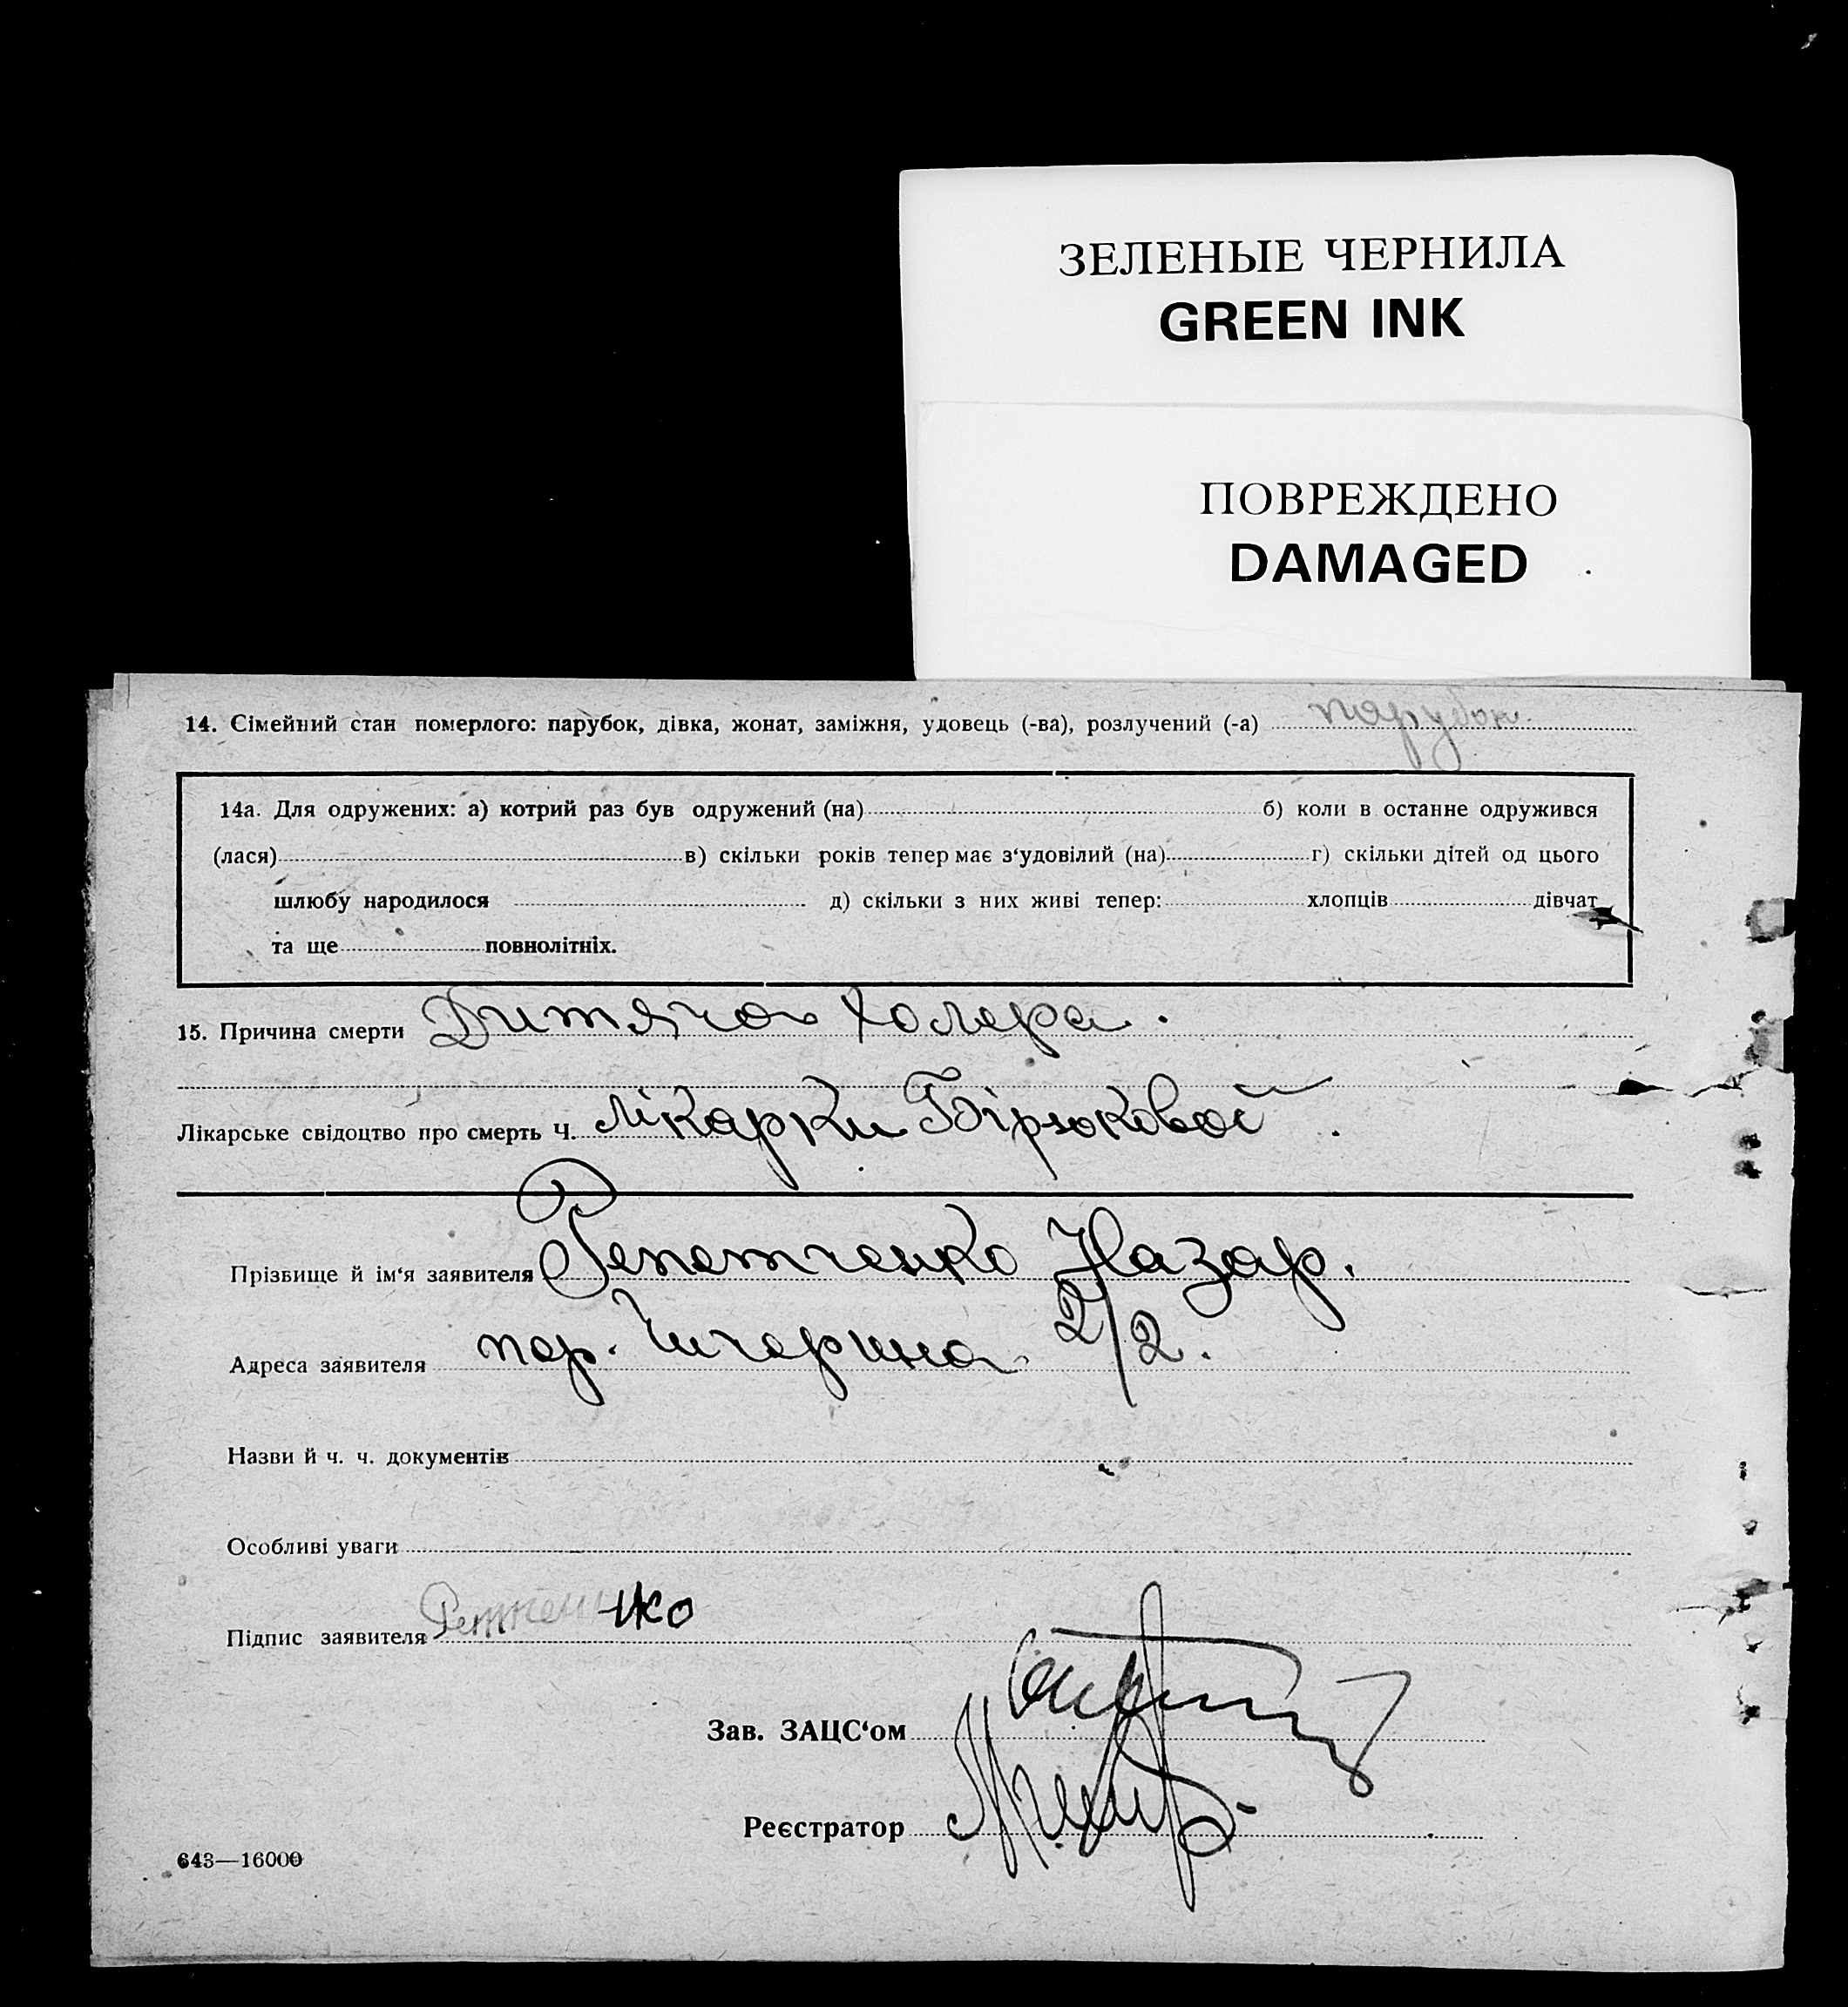 ЗЕЛЕНЫЕ ЧЕРНИЛА
GREEN INK
ПОВРЕЖДЕНО
DAMAGED
14. Сімейний стан померлого: парубок, дівка, жонат, заміжня, удовець (-ва), розлучений (-а) парубок.
14а. Для одружених: а) котрий раз був одружений (на) б) коли в останне одружився
(лася) в) скільки років тепер має з‘удовілий (на) г) скільки дітей од цього
шлюбу народилося д) скільки з них живі тепер: хлопців дівчат
та ще повнолітніх.
15. Причина смерти Дитяча холера.
Лікарське свідоцтво про смерть Ч. Лікарки Бірюковой.
Прізвище й ім‘я заявителя Репетченко Назар.
Адреса заявителя пер. Чичерина 2/2.
Назви й ч. ч. документів
Особливі уваги
Підпис заявителя
Зав. ЗАЦС‘ом
Реєстратор
643—16000